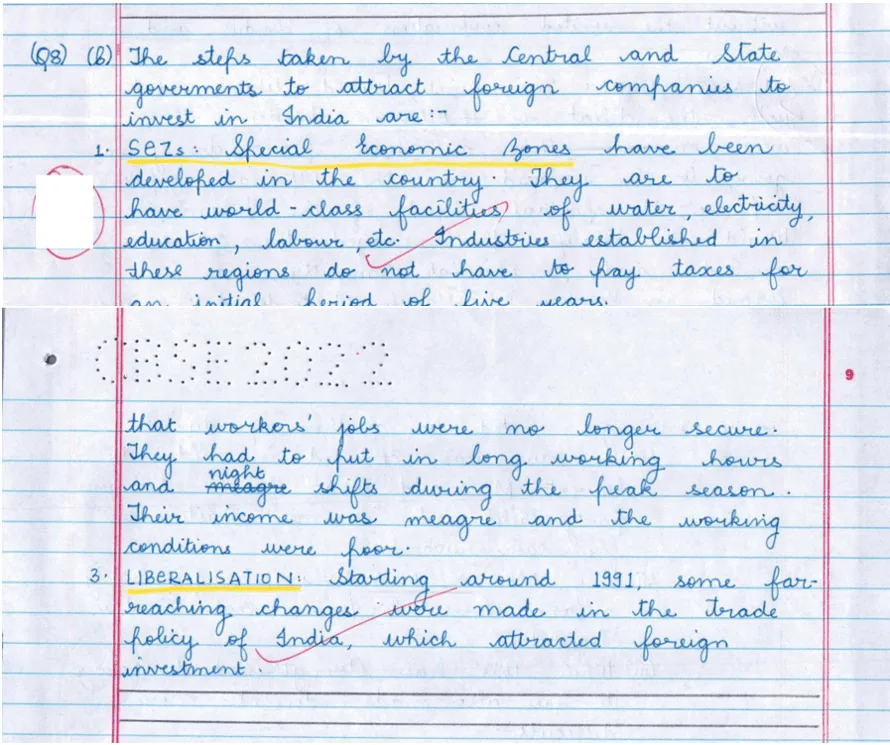 (Q8) (b) The steps taken by the Central and State
goverments to attract foreign companies to
invest in India are :-
1. SEZs : Special Economic Zones have been
developed in the country. They are to
have world-class facilities of water, electricity,
education, labour, etc. Industries established in
these regions do not have to pay taxes for
an initial period of five years.
CBSE2022
9
that workers' jobs were no longer secure.
They had to put in long working hours
and meagre night shifts during the peak season.
Their income was meagre and the working
conditions were poor.
3. LIBERALISATION: Starding around 1991, some far-
reaching changes were made in the trade
policy of India, which attracted foreign
investment.